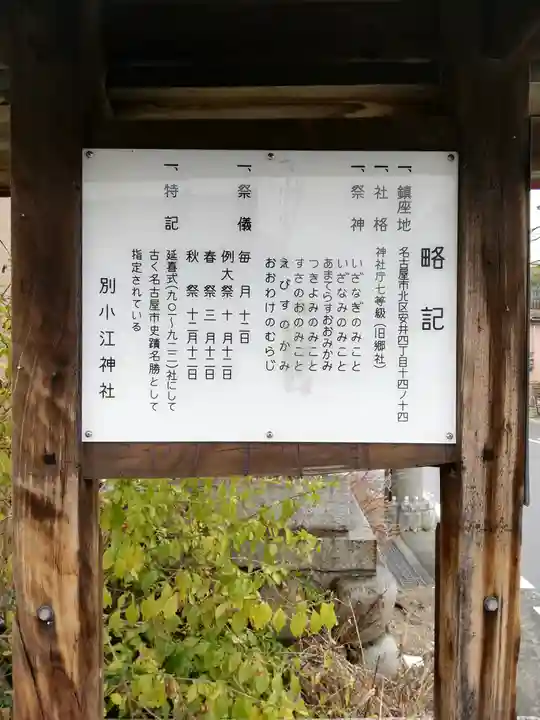 略記
一、鎮座地 名古屋市北区安井四丁目十四ノ十四
一、社格 神社庁七等級(旧郷社)
一、祭神 いざなぎのみこと
いざなみのみこと
あまてらすおおみかみ
つきよみのみこと
すさのおのみこと
えびすのかみ
おおわけのむらじ
一、祭儀 毎月 十二日
例大祭 十月十二日
春祭 三月十二日
秋祭 十二月十二日
一、特記 延喜式(九〇一〜九二二)社にして
古く名古屋市史蹟名勝として
指定されている
別小江神社